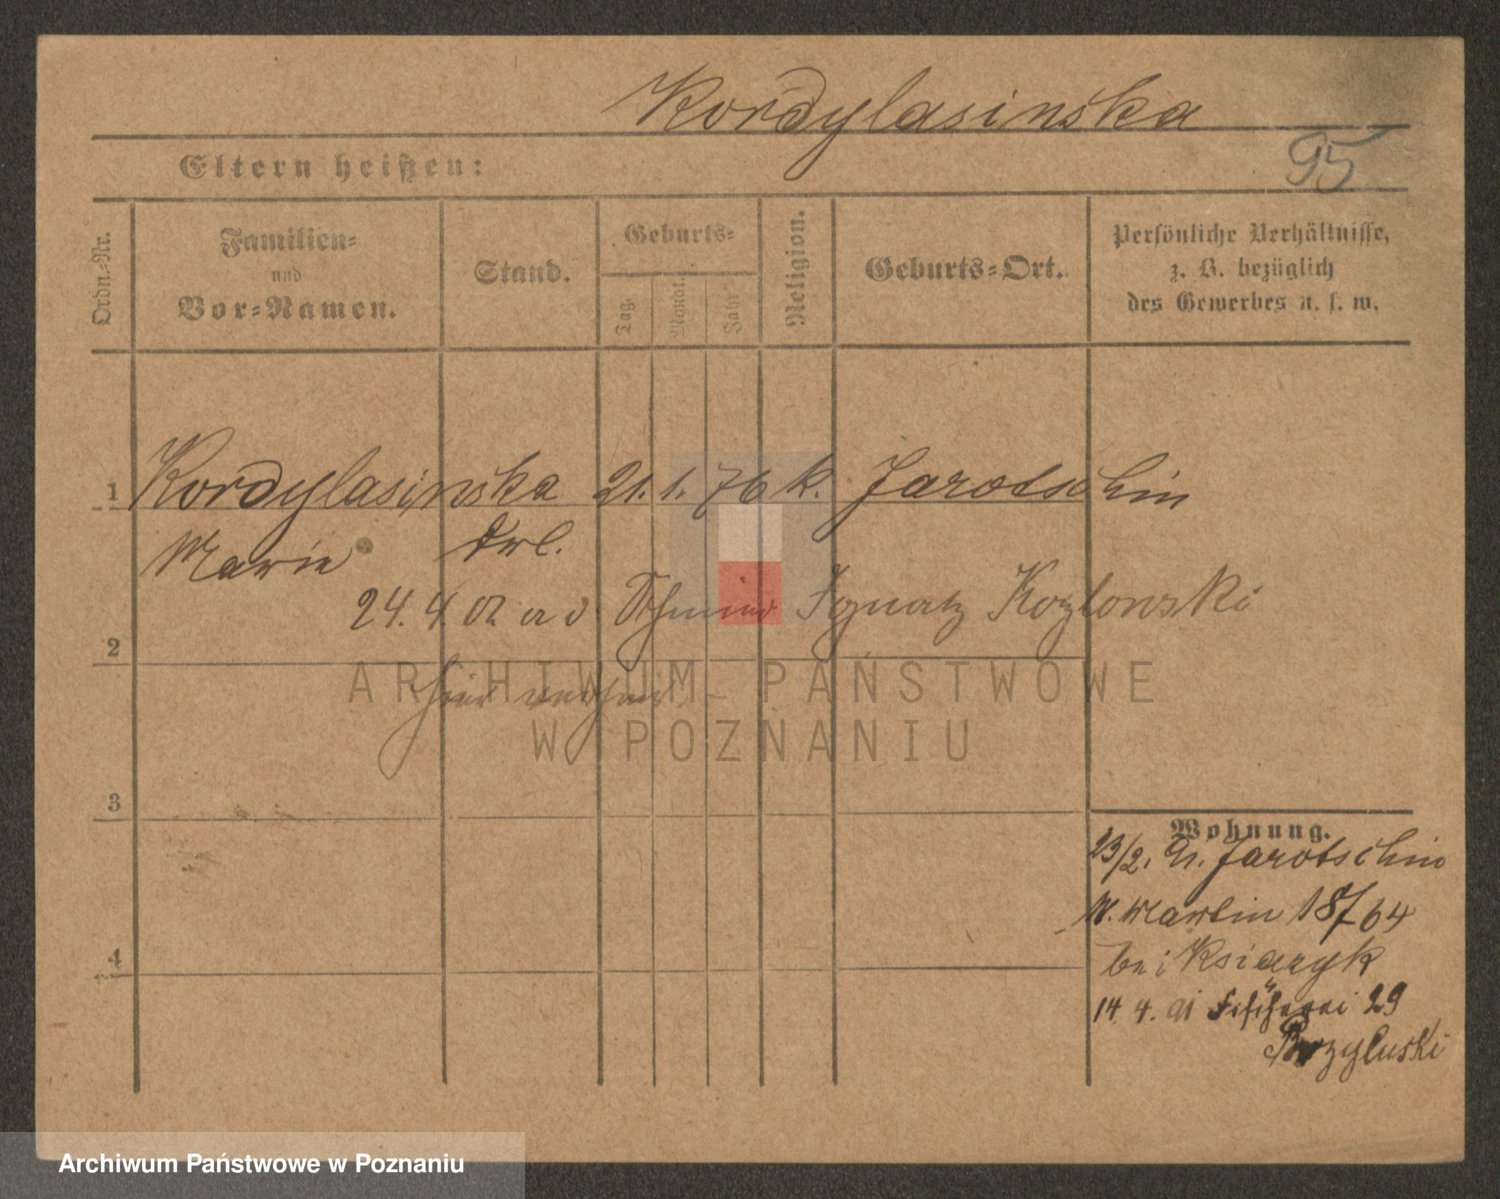 Kordylasinska
95
Eltern heißen:
Ordn.-Nr.
Familien-
und
Vor-Namen.
Stand.
Geburts-
Tag.
Monat.
Jahr
Religion.
Geburts-Ort.
Persönliche Verhältnisse,
z. B. bezüglich
des Gewerbes u. s. w.
1 Kordylasinska 21. 1. 76 k. Jarotschin
Marie
24. 4. 02 Schmied Ignatz Kozlowski
2
hier
ARCHIWUM PAŃSTWOWE
W POZNANIU
3
Wohnung.
23/2. Jarotschin
Martin 18/64
4
bei Ksiazyk
14. 4. Fischerei 29
Brzyluski
Archiwum Państwowe w Poznaniu